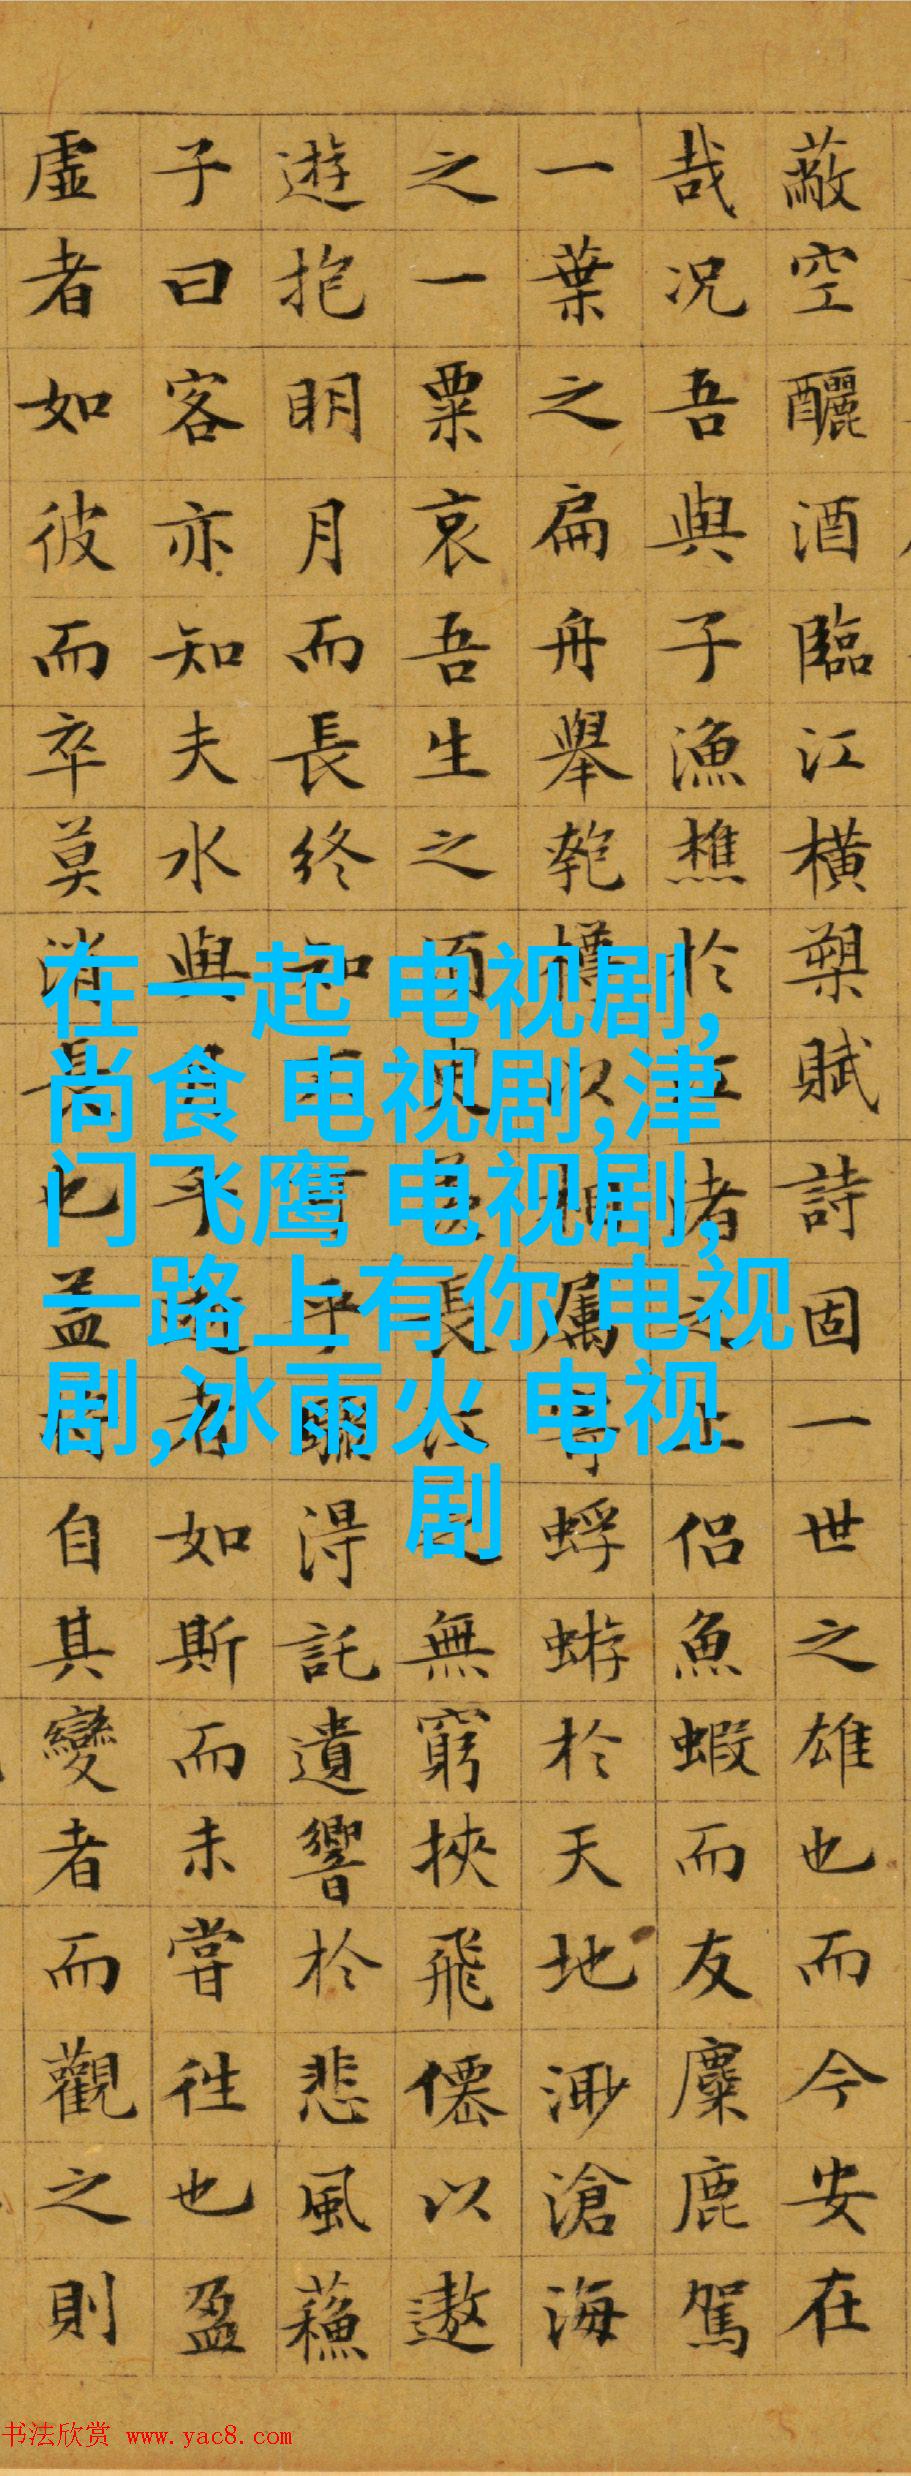 蔽空釃酒臨江橫槊賦詩固一世之雄也而今安在
哉况吾與子漁樵於江渚之上侶魚蝦而友麋鹿駕
一葉之扁舟舉匏樽以相属寄蜉蝣於天地渺滄海
之一粟哀吾生之須臾羨長江之無窮挾飛僊以遨
遊抱明月而長終知不可乎驟得託遺響於悲風蘓
子曰客亦知夫水與月乎逝者如斯而未嘗往也盈
虛者如彼而卒莫消長也盖將自其變者而觀之則
在一起 电视剧,
尚食 电视剧,津
门飞鹰 电视剧,
一路上有你 电视
剧,冰雨火 电视
剧
书法欣赏 www.yac8.com